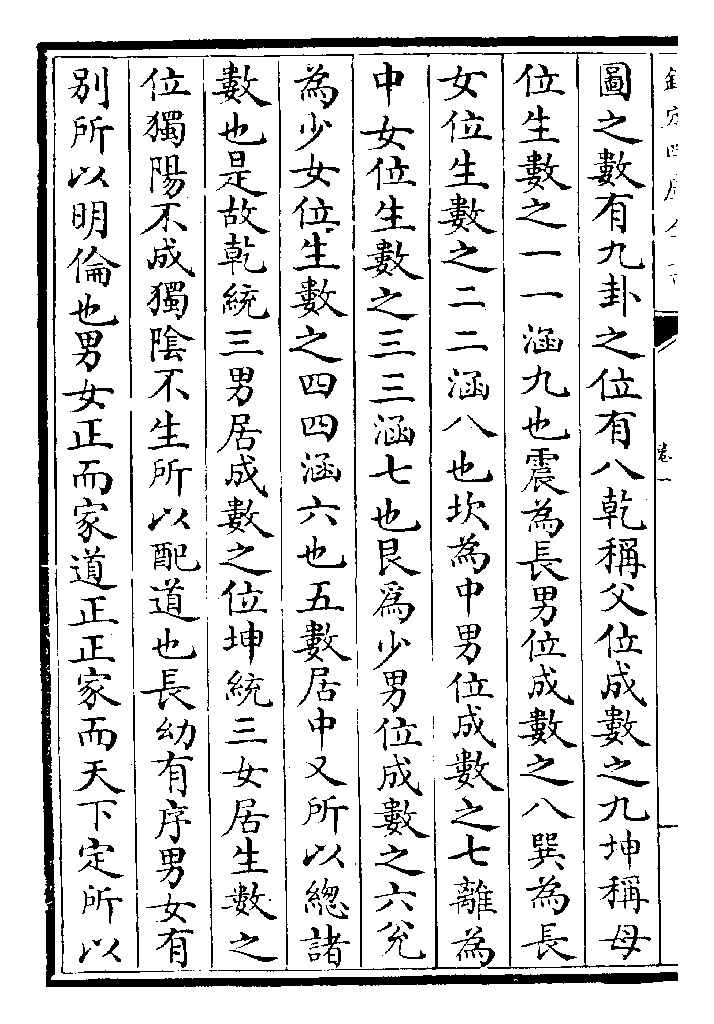 圖之數有九卦之位有八乾稱父位成數之九坤稱母
位生數之一一涵九也震為長男位成數之八巽為長
女位生數之二二涵八也坎為中男位成數之七離為
中女位生數之三三涵七也艮爲少男位成數之六兊
為少女位生數之四四涵六也五數居中又所以總諸
數也是故乾統三男居成數之位坤統三女居生數之
位獨陽不成獨陰不生所以配道也長幼有序男女有
別所以明倫也男女正而家道正正家而天下定所以